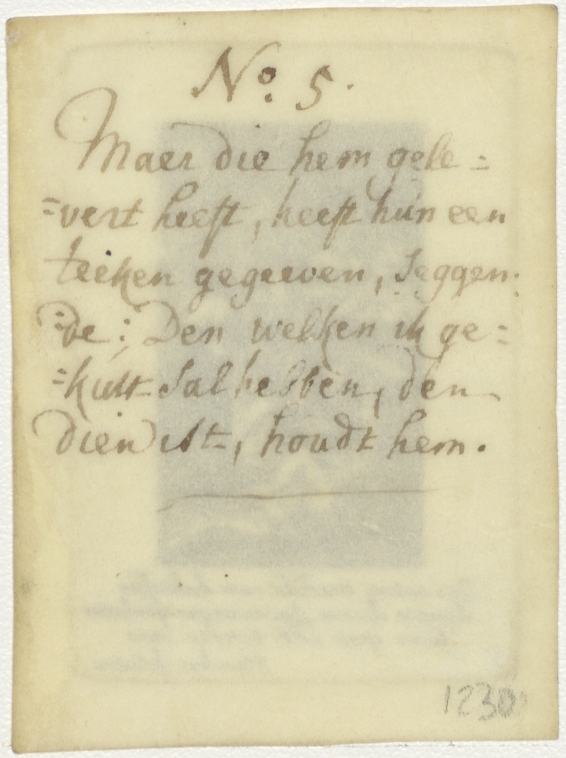 No. 5.
Maer die hem gele=
=vert heeft, heeft hun een
teeken gegeeven, Seggen:
:de: Den welken ik ge=
=kust Sal hebben, den
dien ist, houdt hem.
1230